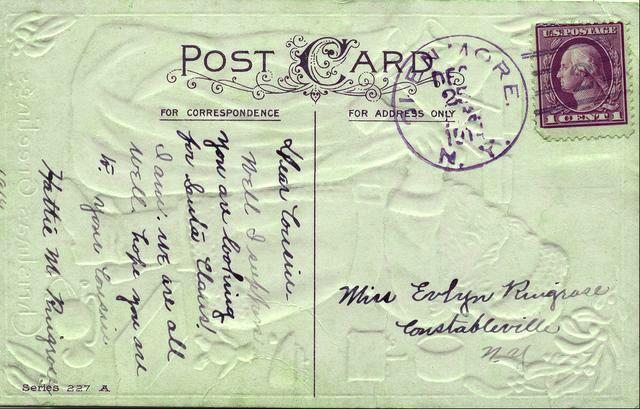 POST CARD
FOR CORRESPONDENCE
FOR ADDRESS ONLY
U.S. POSTAGE
1 CENT 1
DEC
25
N.Y.
Dear Cousin
Well I suppose
you are looking
for Santa Claus!
I am: we are all
well hope you are
to. your Cousin
Hattie M. Ringrose
Miss Evlyn Ringrose
Constableville
NY
Series 227 A